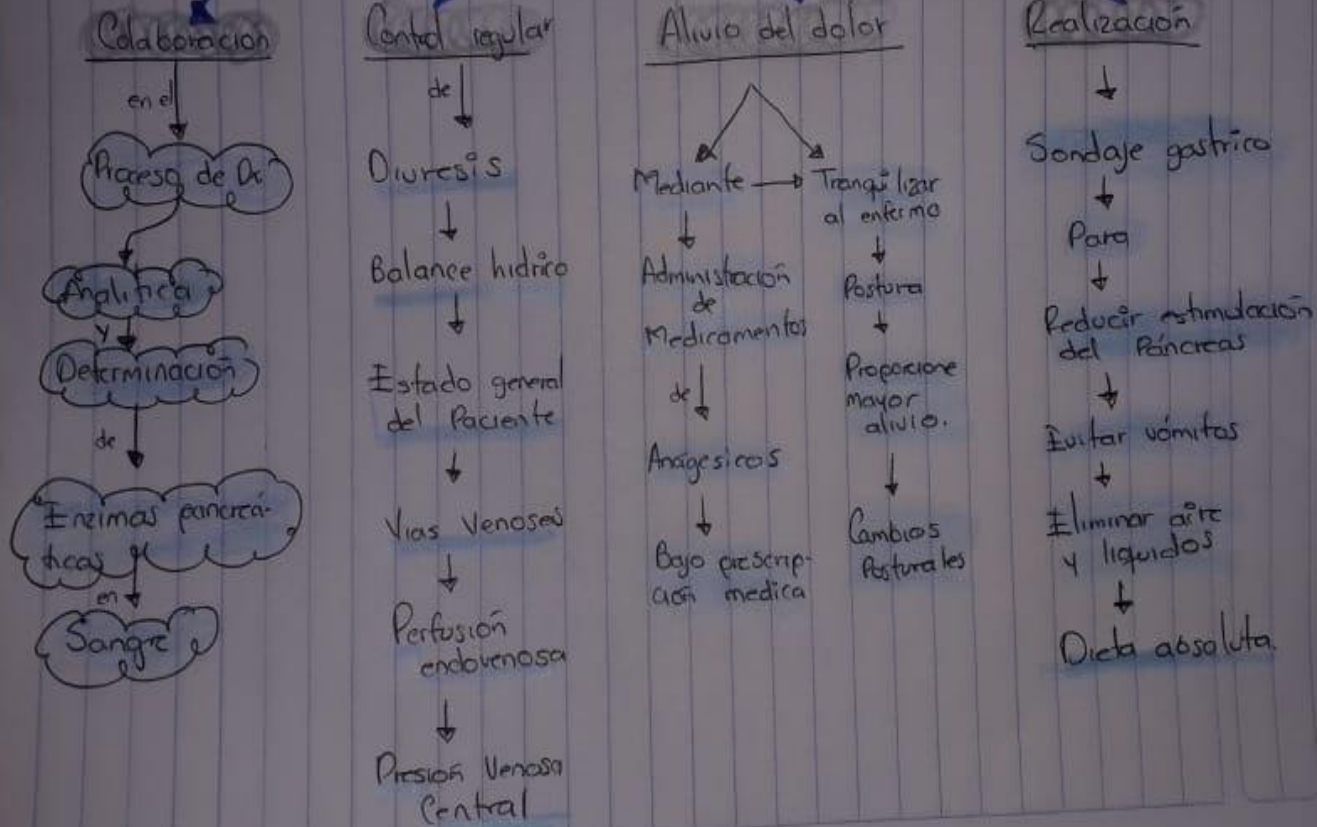 Colaboracion
en el
Proceso de Dx
Analitica
y
Determinación
de
Enzimas pancreá-
ticas
en
Sangre
Control regular
de
Diuresis
Balance hidrico
Estado general
del Paciente
Vias Venosas
Perfusión
endovenosa
Presión Venosa
Central
Alivio del dolor
Mediante
Administración
de
Medicamentos
de
Anagesicos
Bajo prescrip-
ción medica
Tranquilizar
al enfermo
Postura
Proporcione
mayor
alivio.
Cambios
Posturales
Realización
Sondaje gastrico
Para
Reducir estimulación
del Páncreas
Evitar vómitos
Eliminar aire
y liquidos
Dieta absoluta.